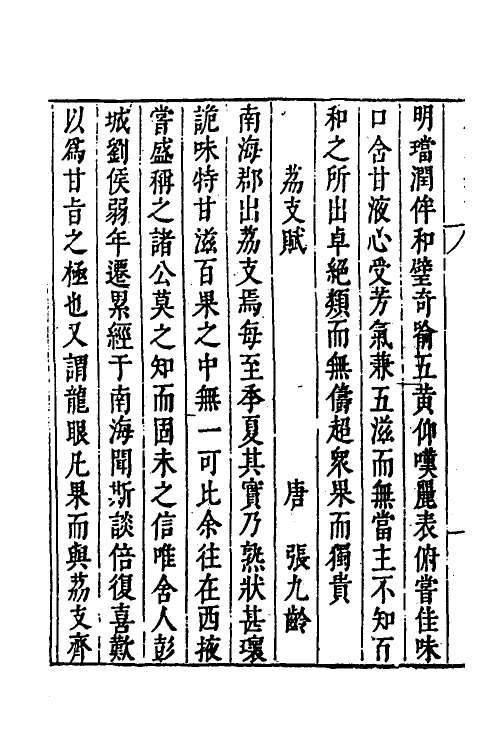 明璫潤侔和璧奇踰五黃仰嘆麗表俯嘗佳味
口含甘液心受芳氣兼五滋而無當主不知百
和之所出卓絕類而無儔超衆果而獨貴
荔支賦 唐 張九齡
南海郡出荔支焉每至季夏其實乃熟狀甚瓌
詭味特甘滋百果之中無一可比余往在西掖
嘗盛稱之諸公莫之知而固未之信唯舍人彭
城劉侯弱年遷累經于南海聞斯談倍復喜歎
以爲甘旨之極也又謂龍眼凡果而與荔支齊